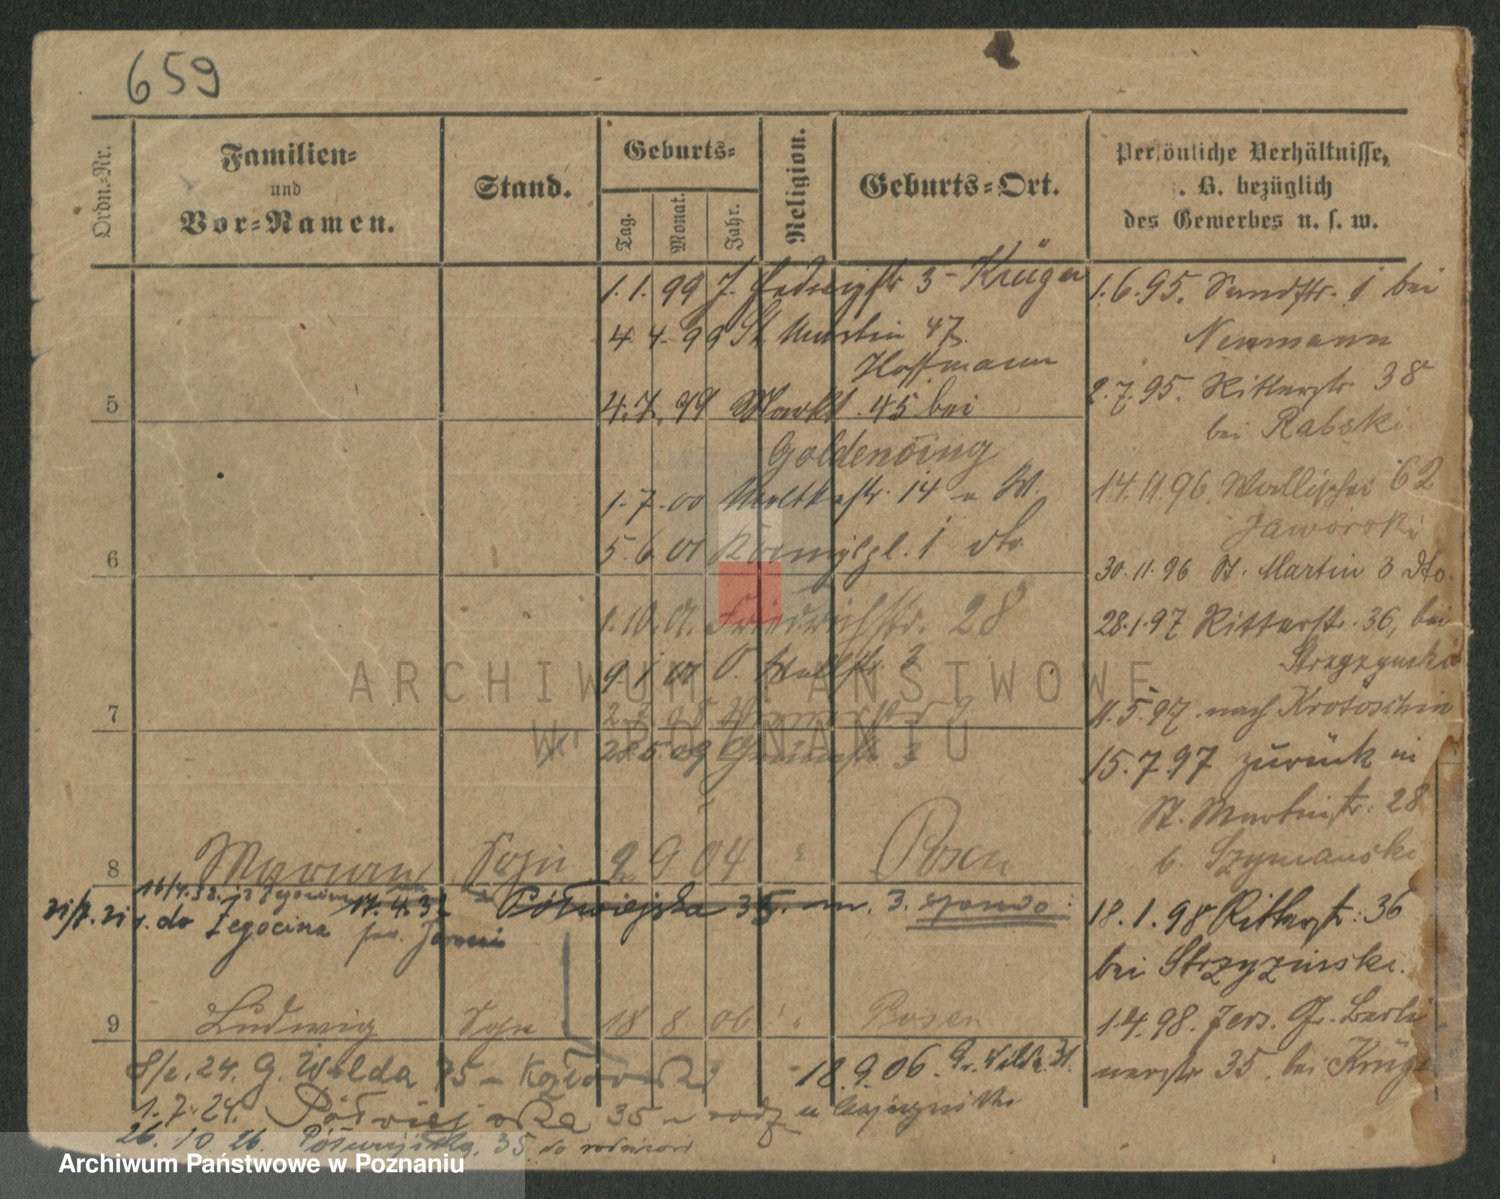 659
Ordn.-Nr.
Familien-
und
Vor-Namen.
Stand.
Geburts-
Tag.
Monat.
Jahr.
Religion.
Geburts-Ort.
Persönliche Verhältnisse,
. B. bezüglich
des Gewerbes u. s. w.
1.1.99 J. Hedwigstr 3 - Krüger
4 4. 99 St. Martin 47
Hoffmann
5
4.7.99 Markt 45 bei
Goldenring
1.7.00 14 u W.
6
5.6.01 1 dto.
1.10.01. Friedrichstr. 28
9.1.03 O. Wallstr. 3
7
28.5.09 3
8
Marian Sohn 2 9 04 Posen
17.4.32 Półwiejska 35. m. 3.
do Żegocina
9
Ludwig Sohn 18 8 06 Posen
24. G. Wilda 75 - Kozłowski
18.9.06. Gr. Wilda 31.
1.7.24. Półwiejska 35 - u
26.10.26. Półwiejska 35
1.6.95. Sandstr. 1 bei
Neumann
2.7.95. Ritterstr. 38
bei Rabski
14.11.96. Wallischei 62
Jaworski
30.11.96 St. Martin 3 dto.
28.1.97 Ritterstr. 36, bei
Strzyzynski
11.5.97 nach Krotoschin
15.7.97 zurück in
St. Martinstr. 28
b. Szymanski
18.1.98 Ritterstr. 36
bei Strzyzinski.
1.4.98. Jers. Gr. Berli-
nerstr 35. bei Krüge
ARCHIWUM PAŃSTWOWE
W POZNANIU
Archiwum Państwowe w Poznaniu